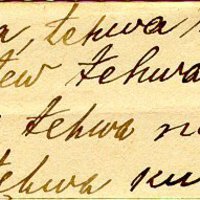 a, tehwa
tew tehwa
tehwa no
tehwa ku